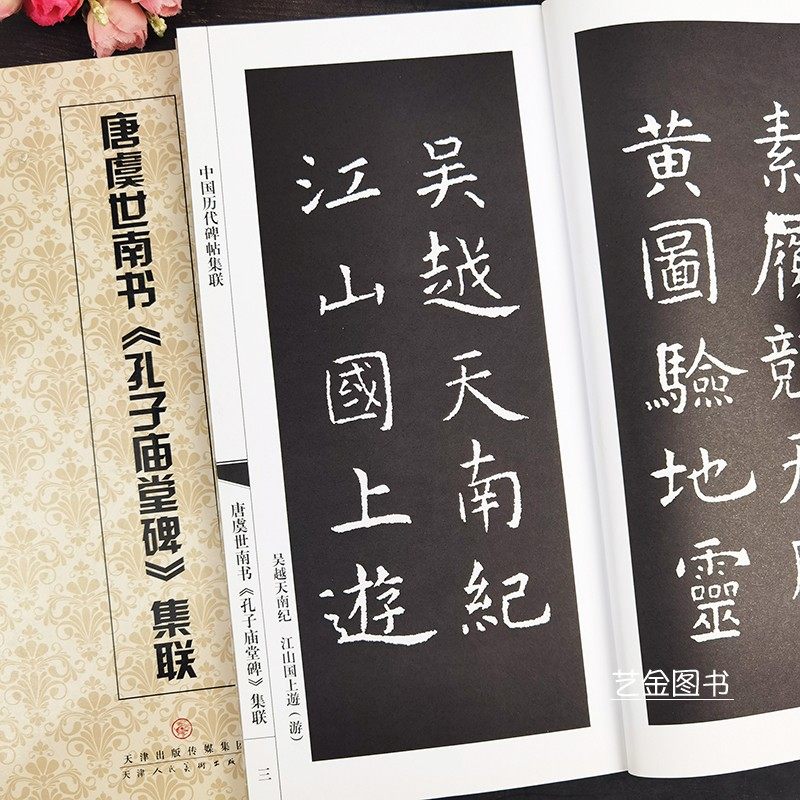 唐虞世南书《孔子庙堂碑》集联
天津出版传媒集团
天津人民美术出版
中国历代碑帖集联
唐虞世南书《孔子庙堂碑》集联
三
吴越天南纪　江山国上遊（游）
吴越天南紀
江山國上遊
素履競
黄圖驗地靈
艺金图书